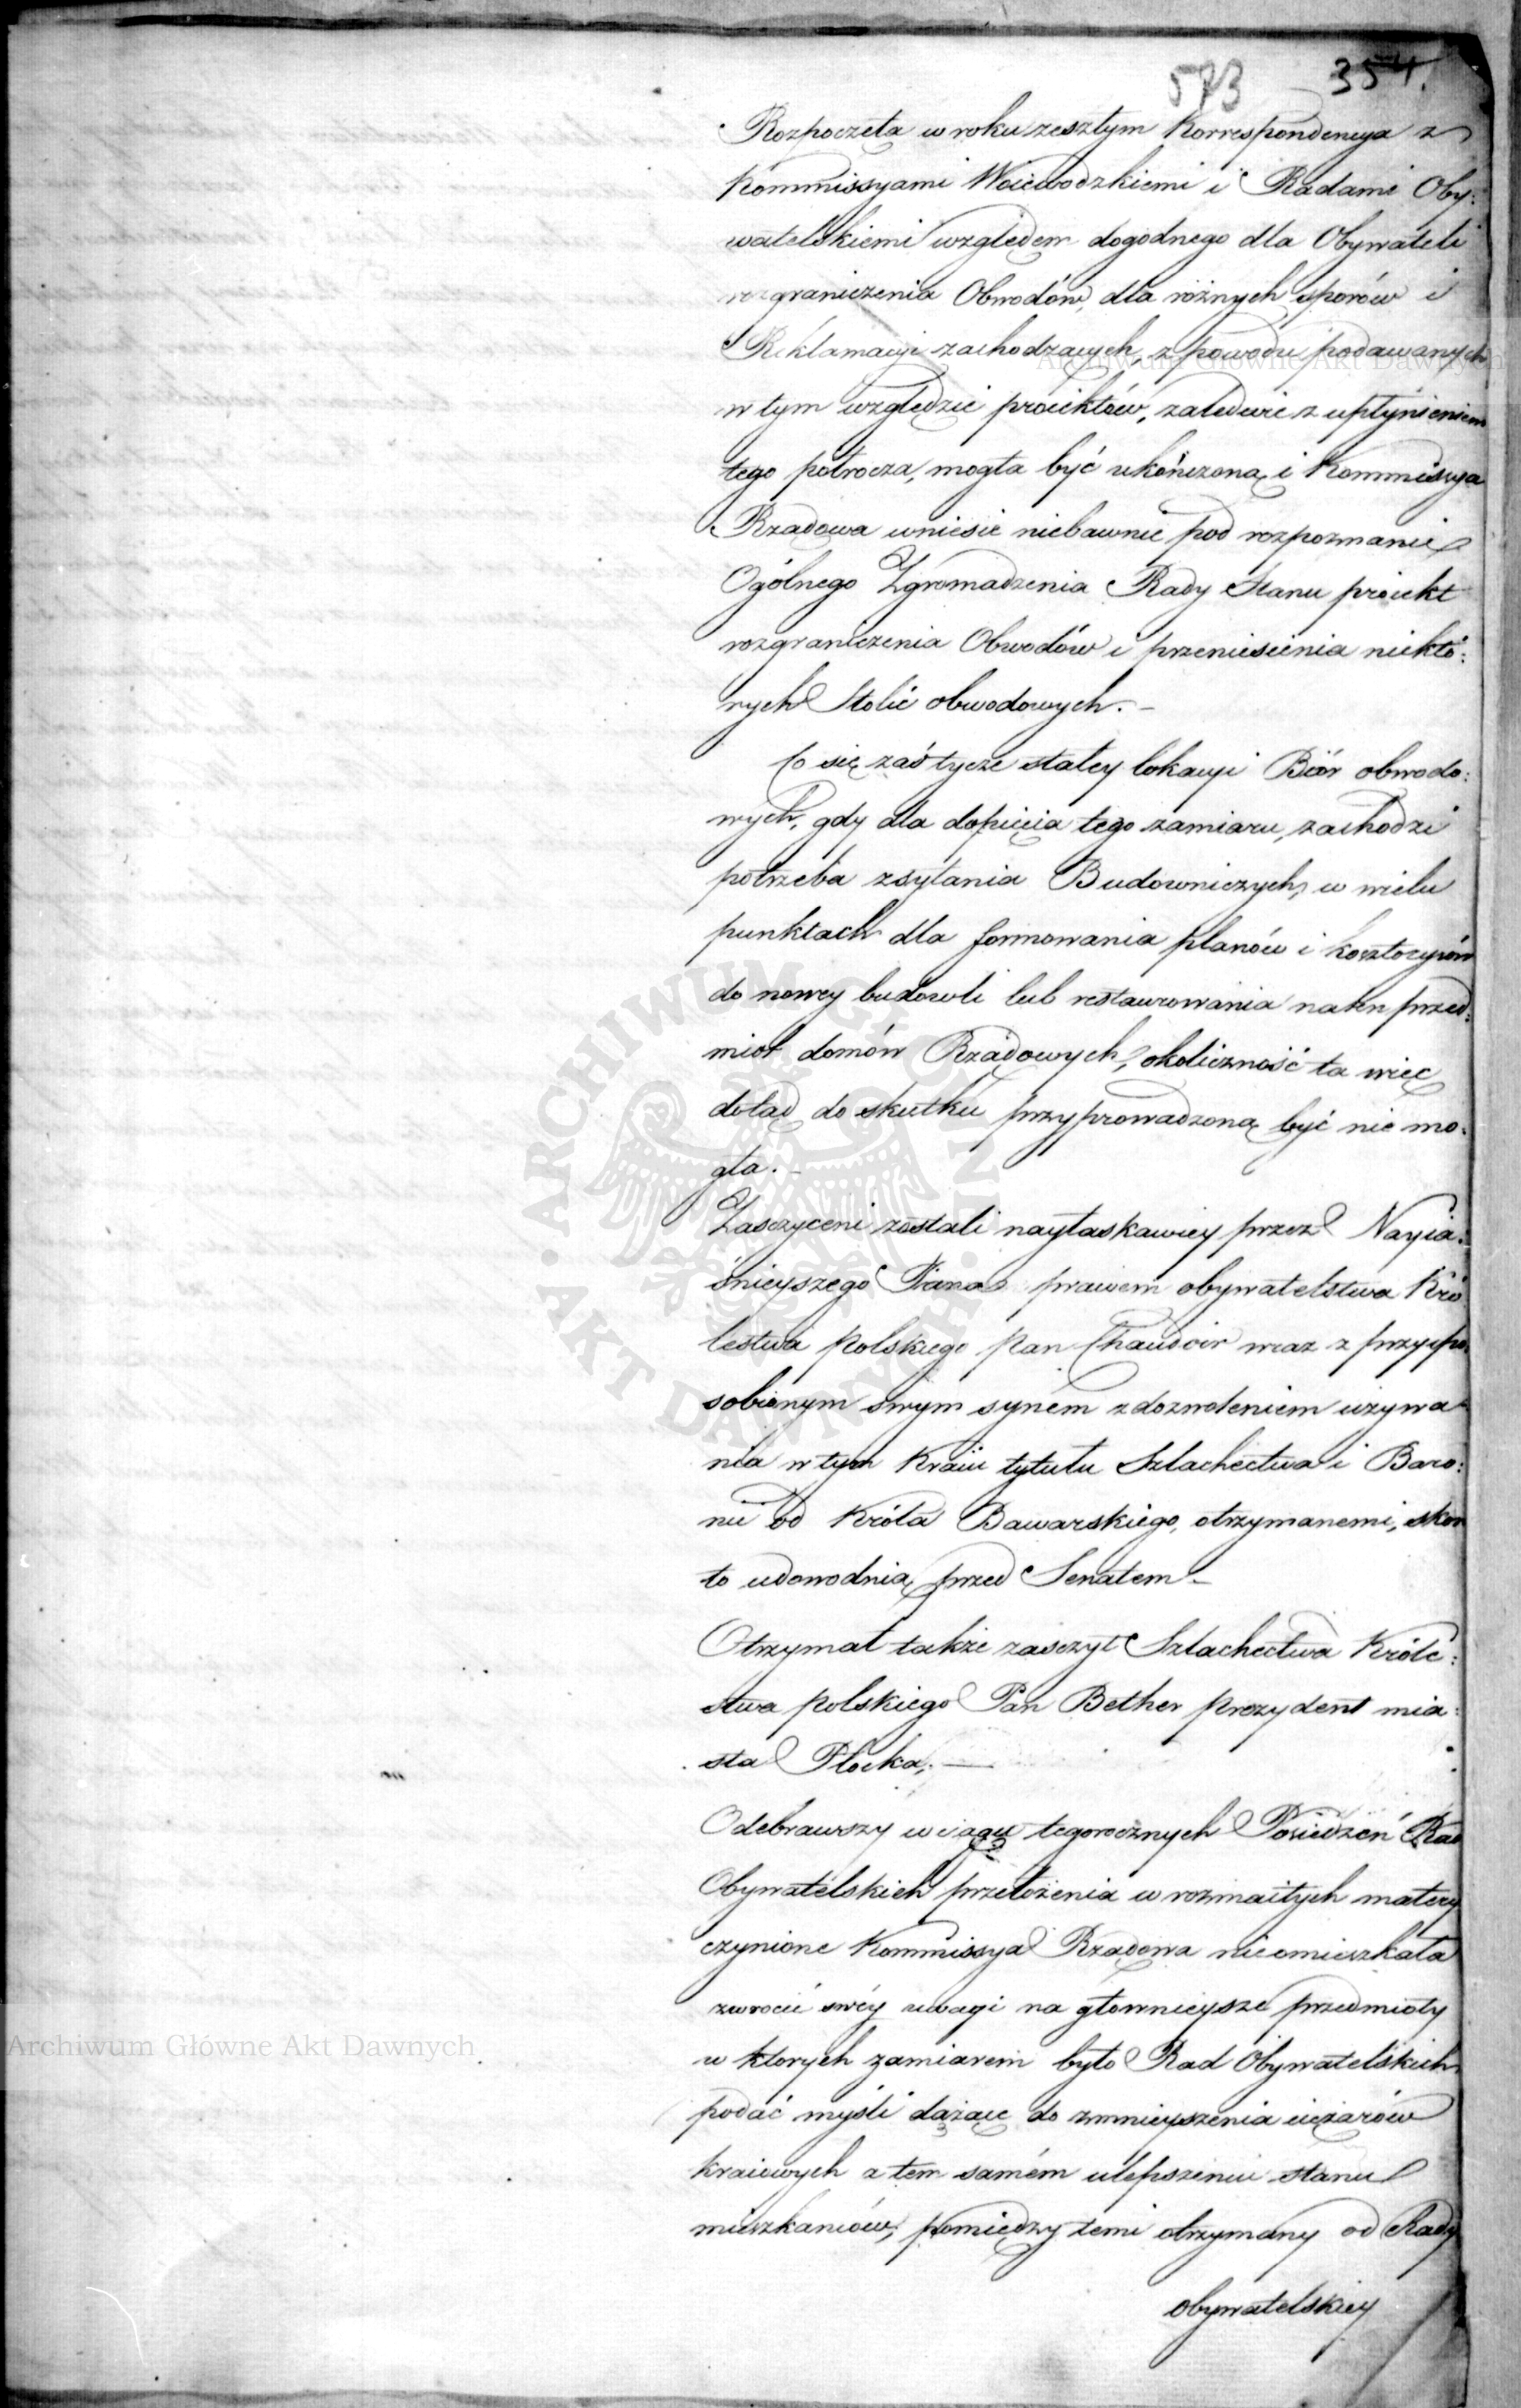 573 354.
Rozpoczęta w roku zeszłym Korrespondencya z
Kommissyami Woiewodzkiemi i Radami Oby:
watelskiemi względem dogodnego dla Obywateli
rozgraniczenia Obwodów, dla różnych sporów i
Reklamacyi zachodzących, z powodu podawanych
w tym względzie proiektów, zaledwie z upłynieniem
tego półrocza, mogła być ukończoną, i Kommissya
Rządowa wniesie niebawnie pod rozpoznanie
Ogólnego Zgromadzenia Rady Stanu proiekt
rozgraniczenia Obwodów i przeniesienia niektó:
rych Stolic obwodowych. –
Co się zaś tycze stałey lokacyi Biór obwodo:
wych, gdy dla dopięcia tego zamiaru, zachodzi
potrzeba zsyłania Budowniczych, w wielu
punktach dla formowania planów i kosztorysów
do nowey budowli lub restaurowania na ten przed:
miot domów Rządowych, okoliczność ta więc
dotąd do skutku przyprowadzoną być nie mo:
gła. –
Zaszczyceni zostali nayłaskawiey przez Nayia:
śnieyszego Pana prawem obywatelstwa Kró
lestwa polskiego Pan Chaudoir wraz z przyspo
sobionym swym synem z dozwoleniem używa
nia w tym Kraiu tytułu Szlachectwa i Baro:
nii od Króla Bawarskiego, otrzymanemi, skoro
to udowodnią przed Senatem –
Otrzymał także zaszczyt Szlachectwa Króle:
stwa polskiego Pan Bether prezydent mia:
sta Płocka. —
Odebrawszy w ciągu tegorocznych Posiedzeń Rad
Obywatelskich przełożenia w rozmaitych matery
czynione Kommissya Rządowa nieomieszkała
zwrócić swéy uwagi na głownieysze przedmioty
w ktorych zamiarem było Rad Obywatelskich
podać myśli dążące do zmnieyszenia ciężarów
kraiowych a tem samém ulepszeniu stanu
mieszkańców, pomiędzy temi otrzymany od Rady
obywatelskiey
Archiwum Główne Akt Dawnych
Archiwum Główne Akt Dawnych
ARCHIWUM GŁÓWNE AKT DAWNYCH